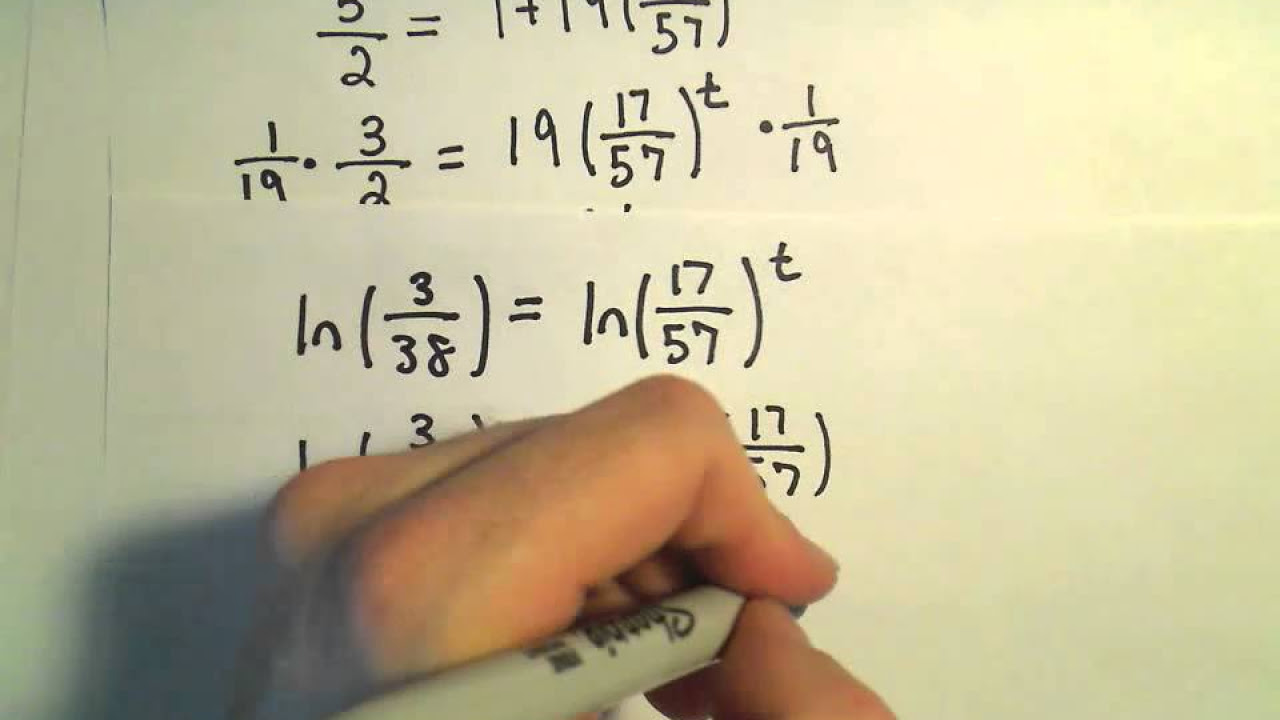 5/2 = 1 + 19(17/57)
1/19 · 3/2 = 19(17/57)^t · 1/19
ln(3/38) = ln(17/57)^t
3 17/57)
Sharpie